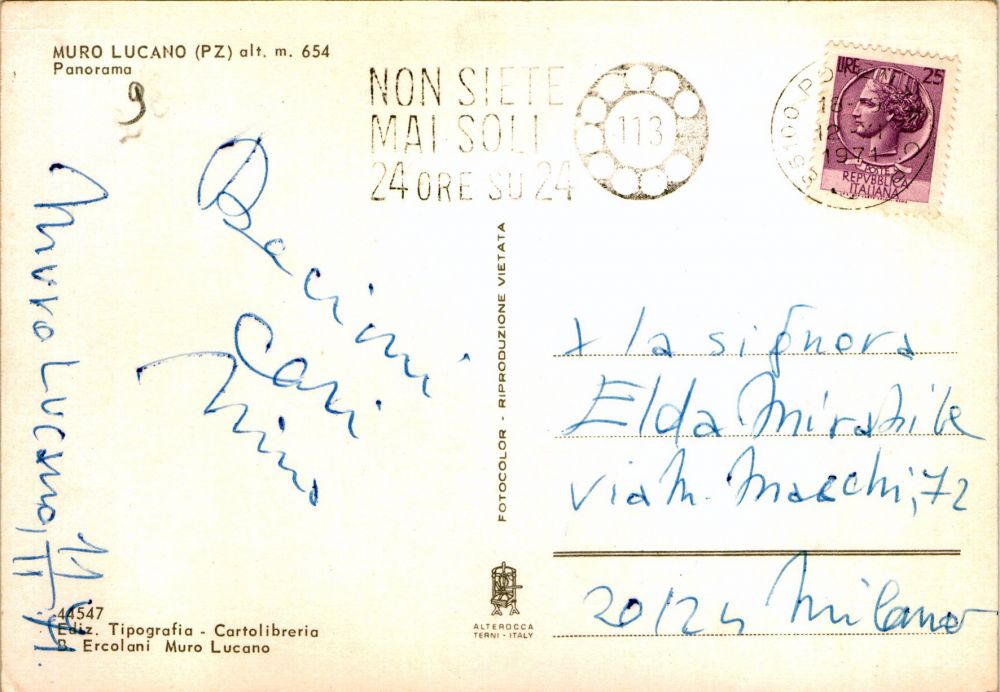 MURO LUCANO (PZ) alt. m. 654
Panorama
9
NON SIETE
MAI SOLI
24 ORE SU 24
113
LIRE 25
POSTE
REPVBBLICA
ITALIANA
85100 PO
18
12
1971
Bacioni
Cari
Nino
Muro Lucano, 11
FOTOCOLOR - RIPRODUZIONE VIETATA
x la signora
Elda Mirabile
via M. Macchi, 72
20124 Milano
44547
Ediz. Tipografia - Cartolibreria
B. Ercolani Muro Lucano
ALTEROCCA
TERNI - ITALY